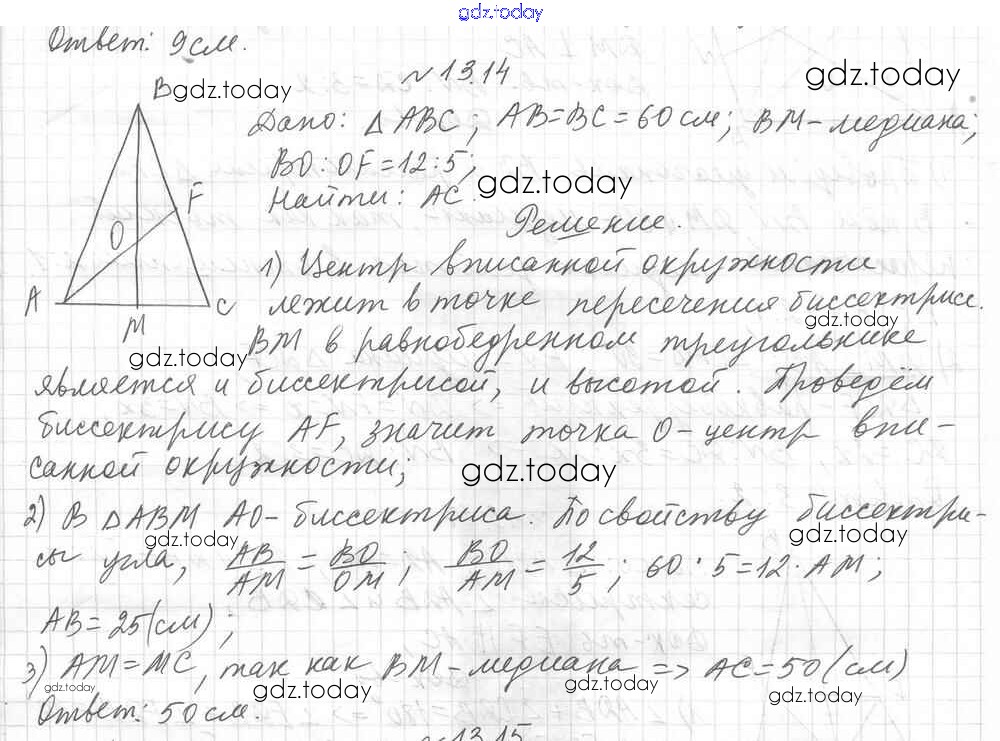 gdz.today
Ответ: 9 см.
№13.14
gdz.today
B gdz.today
Дано: △ABC; AB=BC=60 см; BM-медиана;
BO:OF=12:5;
Найти: AC.
gdz.today
F
O
A
C
M
Решение.
1) Центр вписанной окружности
лежит в точке пересечения биссектрисс.
gdz.today
gdz.today
BM в равнобедренном треугольнике
является и биссектрисой, и высотой. Проведём
биссектрису AF, значит точка O-центр впи-
санной окружности;
gdz.today
2) В △ABM AO-биссектриса. По свойству биссектри-
gdz.today
gdz.today
сы угла, AB/AM = BO/OM; BO/AM = 12/5; 60·5=12·AM;
AB=25(см);
3) AM=MC, так как BM-медиана => AC=50(см)
gdz.today
gdz.today
gdz.today
gdz.today
Ответ: 50 см.
№13.15